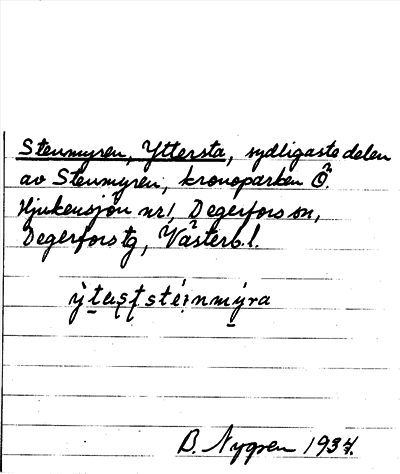 Stenmyren, Yttersta, sydligaste delen
av Stenmyren, kronoparken Ö.
Hjukensjön nr 1, Degerfors sn,
Degerfors tg, Västerb. l.
B. Nygren 1937.